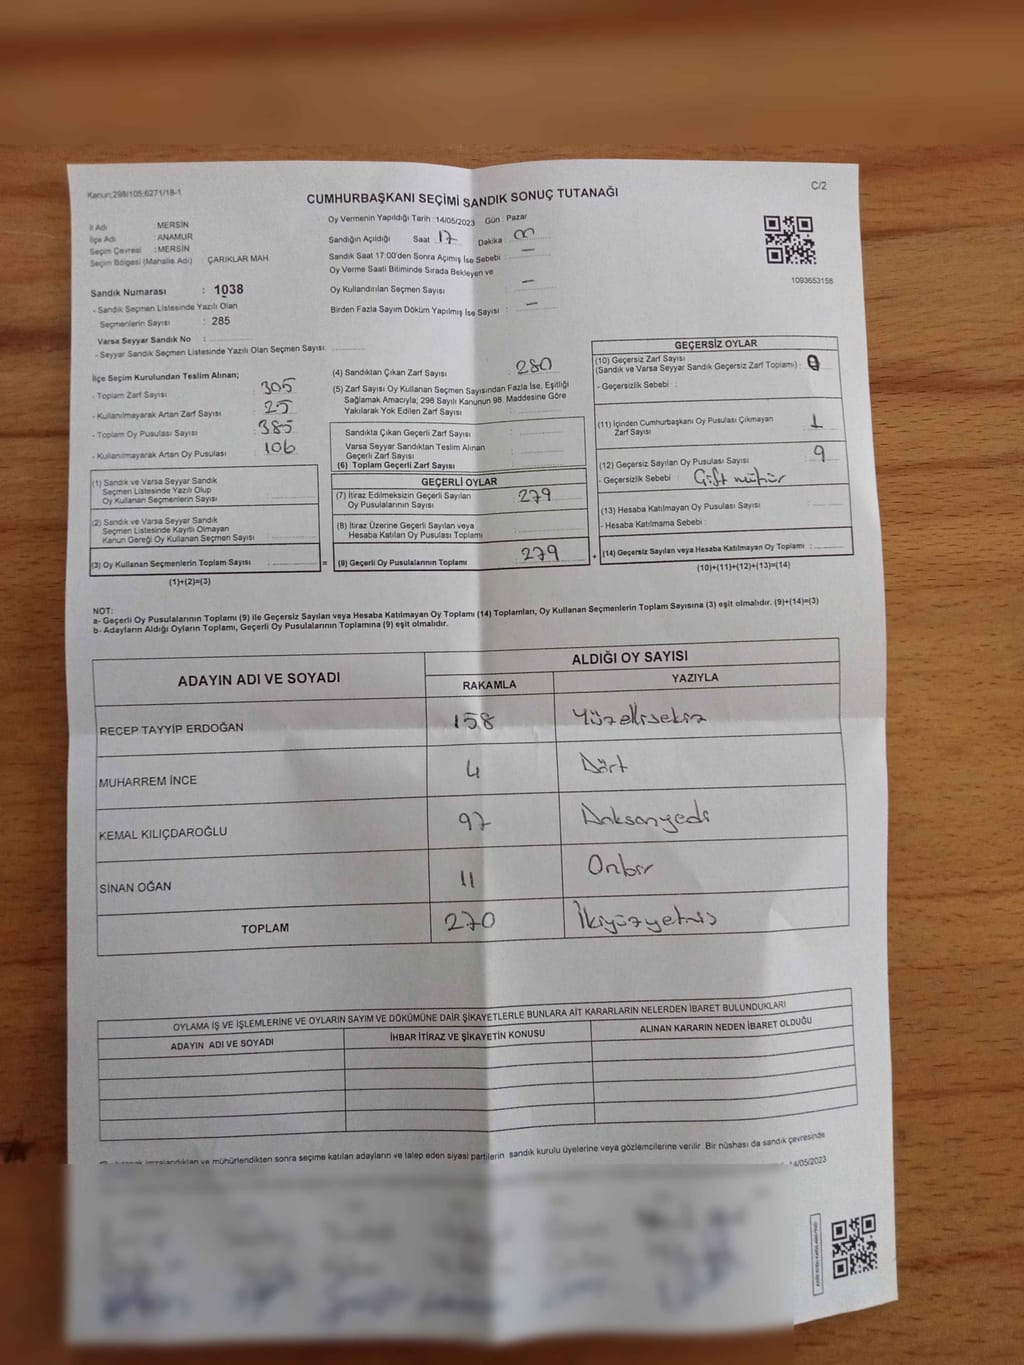 Kanun:298/105:6271/18-1
C/2
CUMHURBAŞKANI SEÇİMİ SANDIK SONUÇ TUTANAĞI
İl Adı MERSİN
İlçe Adı : ANAMUR
Seçim Çevresi : MERSİN
Seçim Bölgesi (Mahalle Adı) : ÇARIKLAR MAH.
Sandık Numarası : 1038
- Sandık Seçmen Listesinde Yazılı Olan
Seçmenlerin Sayısı : 285
Varsa Seyyar Sandık No :
- Seyyar Sandık Seçmen Listesinde Yazılı Olan Seçmen Sayısı:
Oy Vermenin Yapıldığı Tarih : 14/05/2023 Gün : Pazar
Sandığın Açıldığı Saat 17 Dakika 00
Sandık Saat 17:00'den Sonra Açılmış İse Sebebi : —
Oy Verme Saati Bitiminde Sırada Bekleyen ve
Oy Kullandırılan Seçmen Sayısı —
Birden Fazla Sayım Döküm Yapılmış İse Sayısı : —
1093653158
İlçe Seçim Kurulundan Teslim Alınan;
- Toplam Zarf Sayısı : 305
- Kullanılmayarak Artan Zarf Sayısı : 25
- Toplam Oy Pusulası Sayısı : 385
- Kullanılmayarak Artan Oy Pusulası : 106
(1) Sandık ve Varsa Seyyar Sandık
Seçmen Listesinde Yazılı Olup
Oy Kullanan Seçmenlerin Sayısı :
(2) Sandık ve Varsa Seyyar Sandık
Seçmen Listesinde Kayıtlı Olmayan
Kanun Gereği Oy Kullanan Seçmen Sayısı :
(3) Oy Kullanan Seçmenlerin Toplam Sayısı :
(1)+(2)=(3)
(4) Sandıktan Çıkan Zarf Sayısı : 280
(5) Zarf Sayısı Oy Kullanan Seçmen Sayısından Fazla İse, Eşitliği
Sağlamak Amacıyla; 298 Sayılı Kanunun 98. Maddesine Göre
Yakılarak Yok Edilen Zarf Sayısı :
Sandıkta Çıkan Geçerli Zarf Sayısı :
Varsa Seyyar Sandıktan Teslim Alınan
Geçerli Zarf Sayısı :
(6) Toplam Geçerli Zarf Sayısı :
GEÇERLİ OYLAR
(7) İtiraz Edilmeksizin Geçerli Sayılan
Oy Pusulalarının Sayısı : 279
(8) İtiraz Üzerine Geçerli Sayılan veya
Hesaba Katılan Oy Pusulası Toplamı :
= (9) Geçerli Oy Pusulalarının Toplamı : 279
GEÇERSİZ OYLAR
(10) Geçersiz Zarf Sayısı
(Sandık ve Varsa Seyyar Sandık Geçersiz Zarf Toplamı) : 0
- Geçersizlik Sebebi :
(11) İçinden Cumhurbaşkanı Oy Pusulası Çıkmayan
Zarf Sayısı : 1
(12) Geçersiz Sayılan Oy Pusulası Sayısı : 9
- Geçersizlik Sebebi : Çift mühür
(13) Hesaba Katılmayan Oy Pusulası Sayısı :
- Hesaba Katılmama Sebebi :
+ (14) Geçersiz Sayılan veya Hesaba Katılmayan Oy Toplamı :
(10)+(11)+(12)+(13)=(14)
NOT:
a- Geçerli Oy Pusulalarının Toplamı (9) ile Geçersiz Sayılan veya Hesaba Katılmayan Oy Toplamı (14) Toplamları, Oy Kullanan Seçmenlerin Toplam Sayısına (3) eşit olmalıdır. (9)+(14)=(3)
b- Adayların Aldığı Oyların Toplamı, Geçerli Oy Pusulalarının Toplamına (9) eşit olmalıdır.
ADAYIN ADI VE SOYADI ALDIĞI OY SAYISI
RAKAMLA YAZIYLA
RECEP TAYYİP ERDOĞAN 158 Yüzellisekiz
MUHARREM İNCE 4 Dört
KEMAL KILIÇDAROĞLU 97 Doksanyedi
SİNAN OĞAN 11 Onbir
TOPLAM 270 İkiyüzyetmiş
OYLAMA İŞ VE İŞLEMLERİNE VE OYLARIN SAYIM VE DÖKÜMÜNE DAİR ŞİKAYETLERLE BUNLARA AİT KARARLARIN NELERDEN İBARET BULUNDUKLARI
ADAYIN ADI VE SOYADI İHBAR İTİRAZ VE ŞİKAYETİN KONUSU ALINAN KARARIN NEDEN İBARET OLDUĞU
imzalandıktan ve mühürlendikten sonra seçime katılan adayların ve talep eden siyasi partilerin sandık kurulu üyelerine veya gözlemcilerine verilir. Bir nüshası da sandık çevresinde
14/05/2023